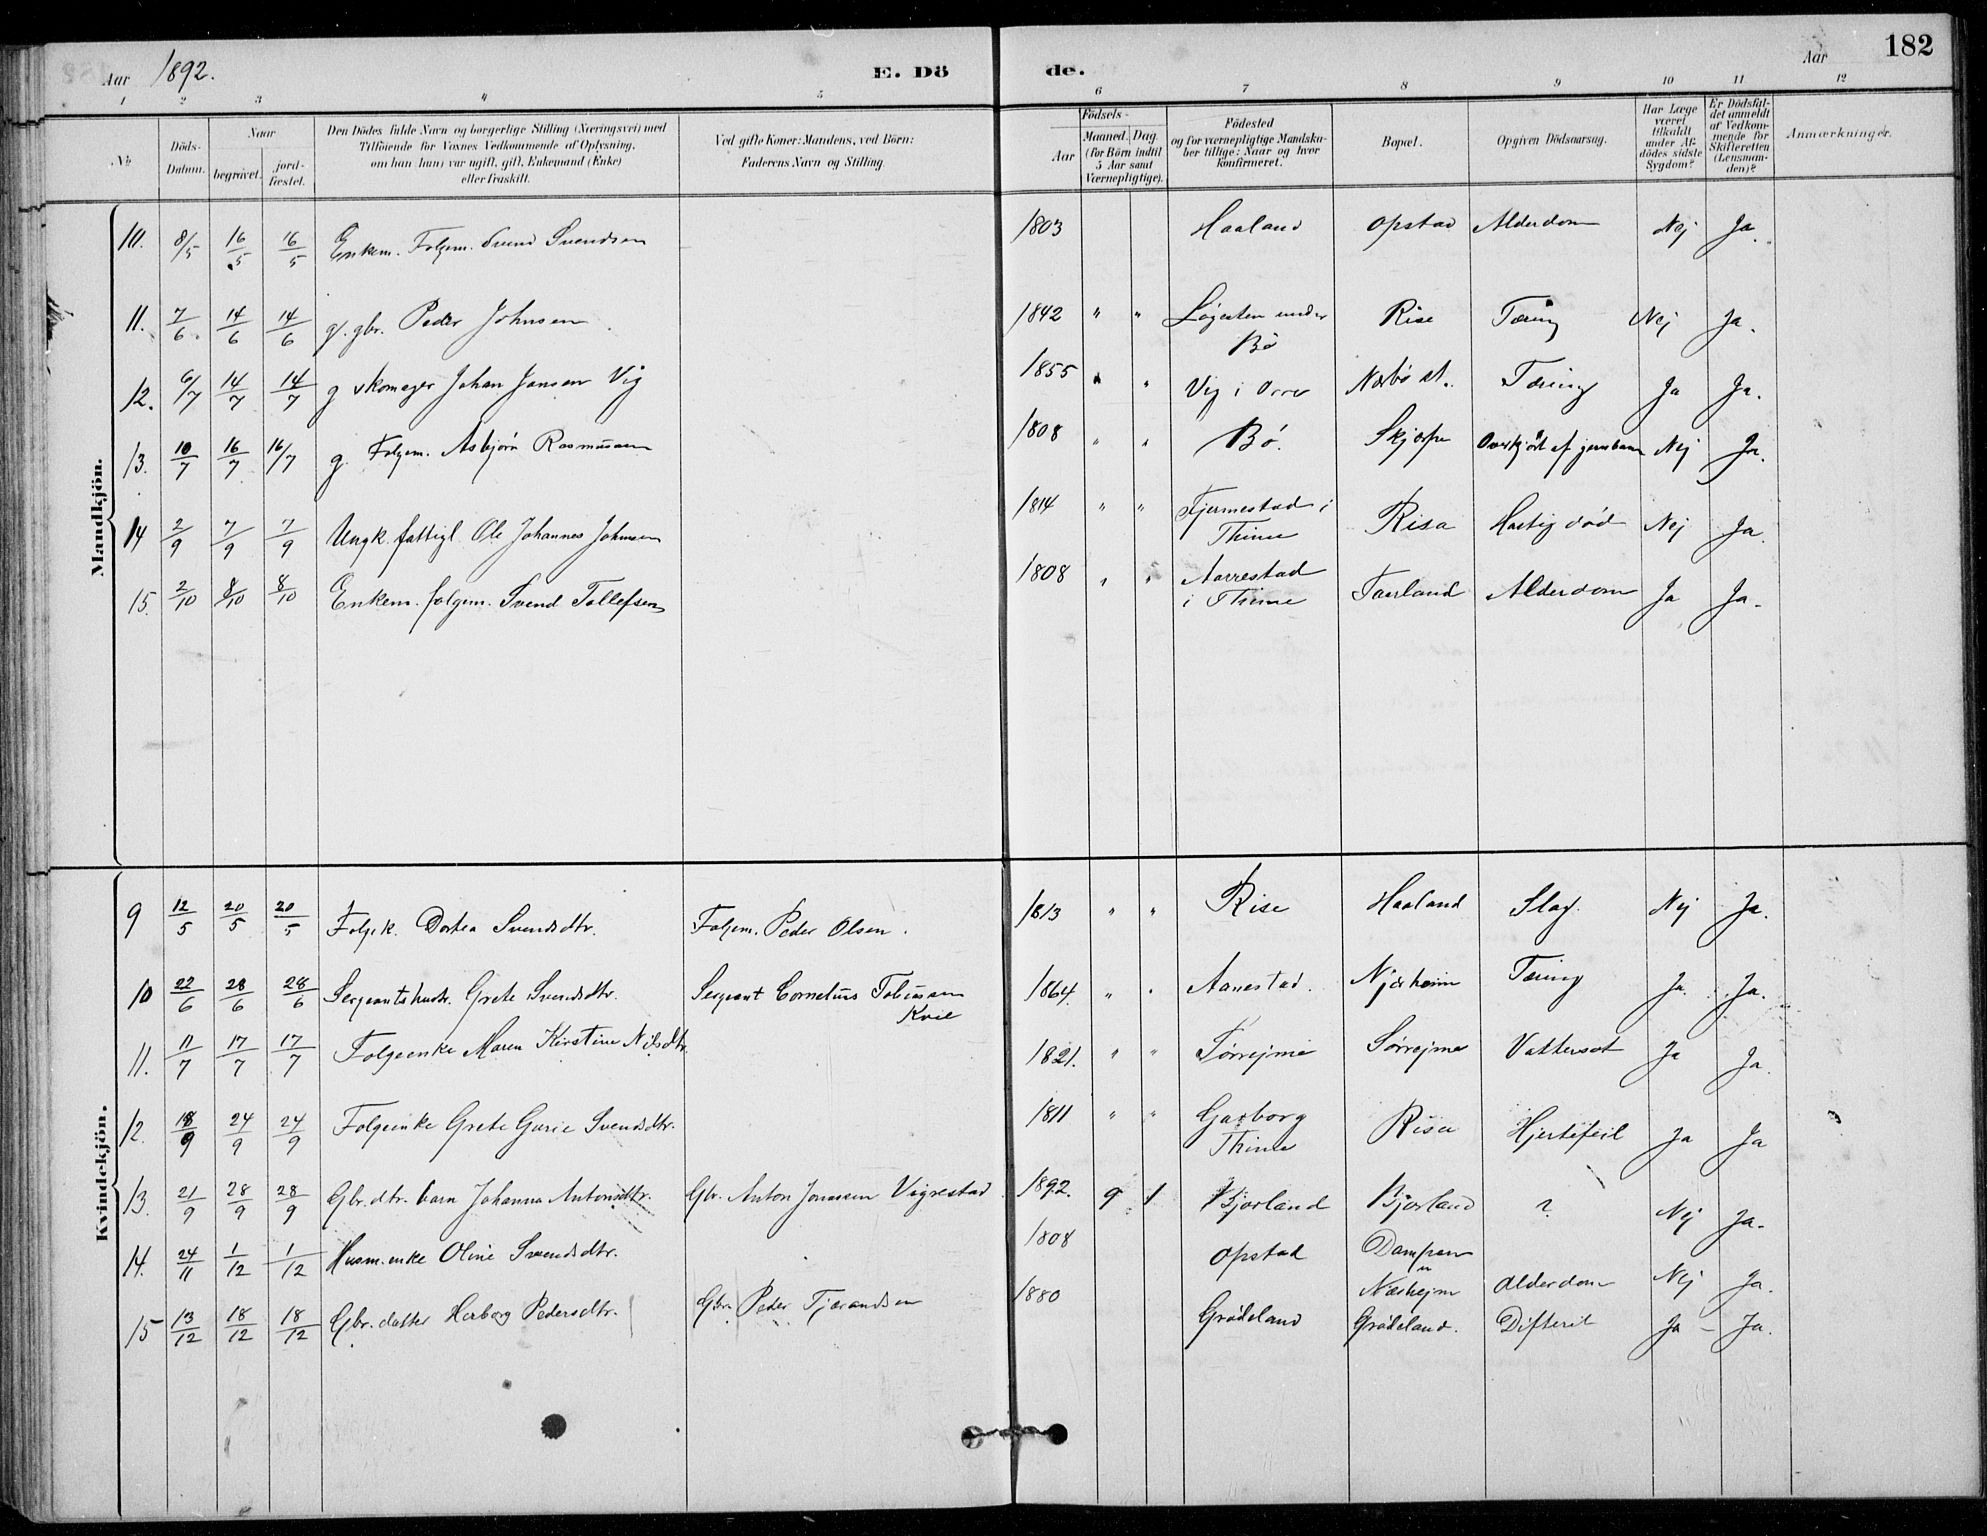 Aar 1892. E. Döde. Aar 182
1 2 3 4 5 6 7 8 9 10 11 12
No. Döds-Datum. Naar begravet. jordfæstet. Den Dödes fulde Navn og borgerlige Stilling (Næringsvei) med Tilföiende for Voxnes Vedkommende af Oplysning, om han (hun) var ugift, gift, Enkemand (Enke) eller fraskilt. Ved gifte Koner: Mandens, ved Börn: Faderens Navn og Stilling. Födsels- Aar Maaned. Dag. (for Börn indtil 5 Aar samt Værnepligtige). Födested og for værnepligtige Mandskaber tillige: Naar og hvor konfirmeret. Bopæl. Opgiven Dödsaarsag. Har Læge været tilkaldt under Afdödes sidste Sygdom? Er Dödsfaldet anmeldt af Vedkommende for Skifteretten (Lensmanden)? Anmærkninger.
Mandkjön.
10. 8/5 16/5 16/5 Enkem. Folgem. Svend Svendsen 1803 Haaland Opstad Alderdom Nej Ja.
11. 7/6 14/6 14/6 g. gbr. Peder Johnsen 1842 " " Løgesten under Bø Rise Tæring Nej Ja.
12. 6/7 14/7 14/7 g skomager Johan Jansen Vig 1855 " " Vig i Orre Nærbø st. Tæring Ja Ja.
13. 10/7 16/7 16/7 g. Folgem. Asbjørn Rasmussen 1808 " " Bø. Skjærpe Overkjørt af jernbane Nej Ja.
14 2/9 7/9 7/9 Ungk. fattigl. Ole Johannes Johnsen 1814 " " Fjermestad i Thime Risa Hastig død Nej Ja.
15. 2/10 8/10 8/10 Enkem. folgem. Svend Tollefsen 1808 " " Aarrestad i Thime Taarland Alderdom Ja Ja.
Kvindekjön.
9 12/5 20/5 20/5 Folgek. Dortea Svendsdtr. Folgem. Peder Olsen. 1813 " " Rise Haaland Slag. Nej Ja.
10 22/6 28/6 28/6 Sergeantshustr. Grete Svendsdtr. Sergeant Cornelius Tobiassen Kvie 1864. " " Aanestad. Njærheim Tæring Ja. Ja.
11. 11/7 17/7 17/7 Folgeenke Maren Kirstine Nilsdtr. 1821. " " Sørrejme Sørrejme Vattersot Ja Ja.
12. 18/9 24/9 24/9 Folgeenke Grete Gurie Svendsdtr. 1811 " " Garborg Thime Risa Hjertefeil Ja Ja
13. 21/9 28/9 28/9 Gbr. dtr. barn Johanna Antonsdtr. Gbr. Anton Jonassen Vigrestad 1892. 9 1 Bjorland Bjorland ? Nej Ja.
14. 24/11 1/12 1/12 Husm. enke Oline Svendsdtr. 1808 Opstad Dampen u Nærhejm Alderdom Nej Ja.
15 13/12 18/12 18/12 Gbr. datter Herborg Pedersdtr. Gbr. Peder Tjærandsen 1880 Grødeland Grødeland. Difterit Ja – Ja.